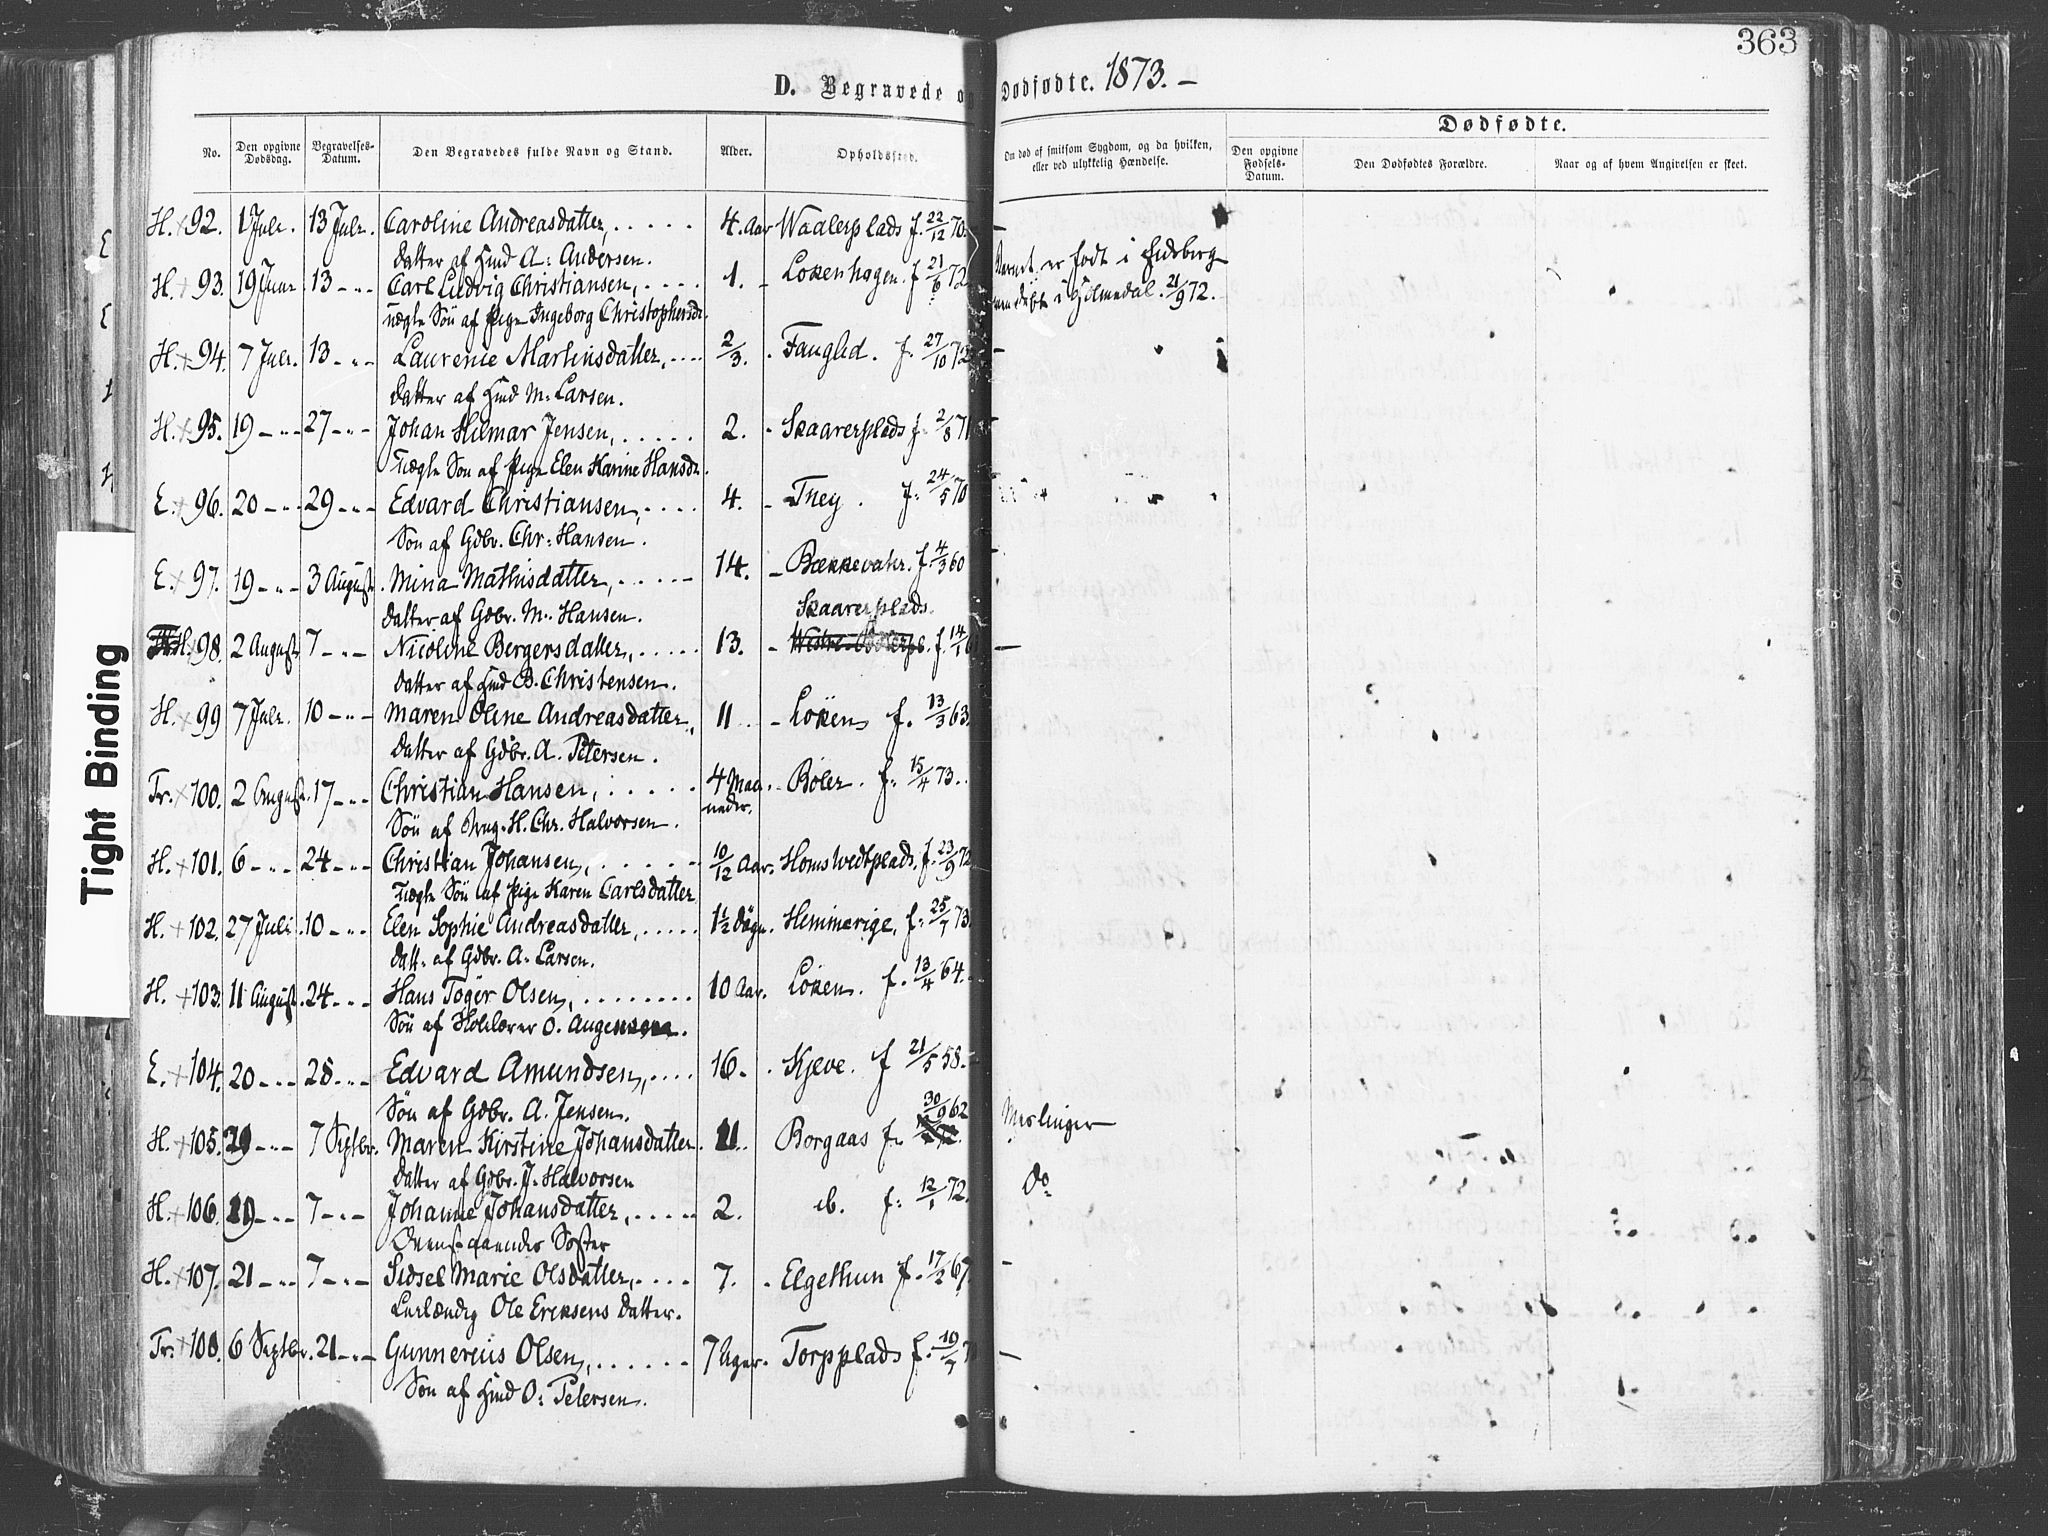 363
D. Begravede og Dødfødte. 1873. –
No. Den opgivne Dødsdag. Begravelses-Datum. Den Begravedes fulde Navn og Stand. Alder. Opholdssted. Om død af smitsom Sygdom, og da hvilken, eller ved ulykkelig Hændelse.
Dødfødte.
Den opgivne Fødsels-Datum. Den Dødfødtes Forældre. Naar og af hvem Angivelsen er skeet.
H. + 92. 1 Juli. 13 Juli. Caroline Andreasdatter, . . . . . 4. Aar Waalerplads f. 22/12 70. –
Datter af Hmd A: Andersen.
H. + 93. 19 Juni 13 – „ – Carl Ludvig Christiansen, . . . . 1. – Lökenhagen. f. 21/6 72 Barnet er født i Eidsberg
uægte Sön af Pige Ingeborg Christophersdr. döbt i 21/9 72.
H. + 94. 7 Juli. 13 – „ – Laurence Martinsdatter, . . . . 2/3. . f. 27/10 72 –
Datter af Hmd M: Larsen.
H. + 95. 19 – „ – 27 – „ – Johan Hilmar Jensen, . . . . . 2. – Skaarerplads f. 2/8 71
Uægte Sön af Pige Elen Karine Hansdr.
E. + 96. 20 – „ – 29 – „ – Edvard Christiansen, . . . . 4. – f. 24/5 70
Sön af Gdbr. Chr: Hansen.
E. + 97. 19 – „ – 3 August. Mina Mathisdatter, . . . . – 14. – Bækkevater. f. 4/3 60 –
Datter af Gdbr. M. Hansen.
Skaarerplads.
H. + 98. 2 August 7 – „ – Nicoline Bergersdatter, . . . . . 13. – f. 14/1 61 –
Datter af Hmd B. Christensen.
H. + 99 7 Juli. 10 – „ – Maren Oline Andreasdatter, 11 . – Löken f. 13/3 63.
Datter af Gdbr. A. Petersen.
Tr. + 100. 2 August. 17 – „ – Christian Hansen, . . . . . 4 Maaneder. Böler. f. 15/4 73.
Sön af H. Chr. Halvorsen.
H. + 101. 6 – „ – 24 – „ – Christian Johansen, . . . . . – 10/12 Aar. Homstvedtplads. f. 23/9 72
Uægte Sön af Pige Karen Carlsdatter
H. + 102. 27 Juli 10 – „ – Elen Sophie Andreasdatter, . . . . . 1½ Dögn. Hemmerige, f. 25/7 73.
Datt. af Gdbr. A. Larsen.
H. + 103. 11 August. 24 – „ – Hans Töger Olsen, . . . . . . . . 10 Aar. Löken. f. 13/4 64.
Sön af O. Augensen.
E. + 104. 20 – „ – 28 – „ – Edvard Amundsen, . . . . 16. . Kjeve. f 21/5 58.
Sön af Gdbr. A. Jensen.
H. + 105. – „ – 7 Septbr. Maren Kirstine Johansdatter. 11. Borgaas f. 30/9 62 Meslinger
Datter af Gdbr. J. Halvorsen
H. + 106. – „ – 7 – „ – Johanne Johansdatter, . . . . . 2. ib. f. 12/1 72. Do
Ovenstaaendes Söster
H. + 107. 21 – „ – 7 – „ – Sidsel Marie Olsdatter, . . . . 7. . Elgethun f. 17/2 67. –
Ole Eriksens Datter.
Tr. + 108. 6 Septbr. 21 – „ – Gunnerius Olsen, . . . . . . 7 Uger. Torpplads f. 19/7 –
Sön af Hmd O: Petersen.
Tight Binding